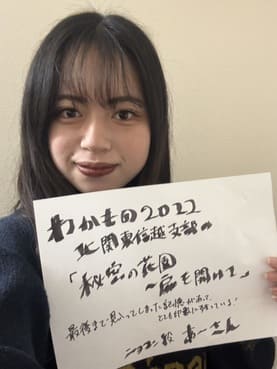 わかもの2022
北関東信越支部の
「秘密の花園
〜扉を開けて」
最後まで見入ってしまった記憶があって、
とても印象に残っている！
あーさん